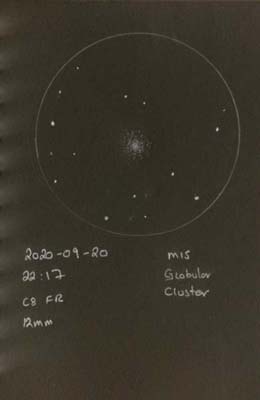 2020-09-20
22:17
C8 FR
12mm
M15
Globular
Cluster